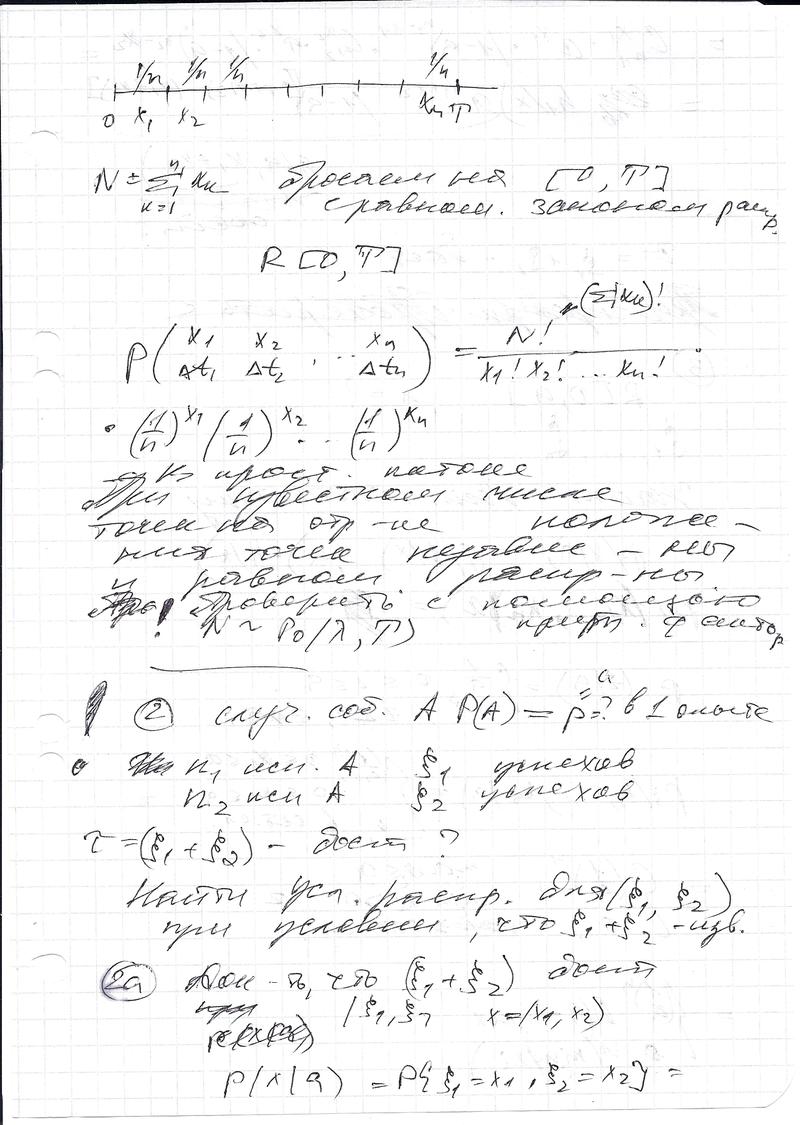 1/n 1/n 1/n 1/n
0 x₁ x₂ xₙ T
N = Σ xₖ бросаем на [0, T]
k=1 n
с равном. законом распр.
R [0, T]
P( x₁ x₂ ... xₙ ) = N! (Σ xₖ)!
Δt₁ Δt₂ Δtₙ x₁! x₂! ... xₙ!
· (1/n)^x₁ (1/n)^x₂ ... (1/n)^xₙ
прост. потоке
При известном числе
точек на отр-ке положе-
ния точек независ-мы
и равном распр-ны
! Проверить с помощью
N ~ Po(λ, T) крит. фактор
! ② случ. соб. A P(A) = p=? в 1 опыте
a
n₁ исп. A ξ₁ успехов
n₂ исп A ξ₂ успехов
τ = (ξ₁ + ξ₂) - дост ?
Найти усл. распр. для (ξ₁, ξ₂)
при условии, что ξ₁ + ξ₂ - изв.
2a Док-ть, что (ξ₁ + ξ₂) дост
ξ₁, ξ₂ x = (x₁, x₂)
P(x|a) = P{ξ₁ = x₁, ξ₂ = x₂} =